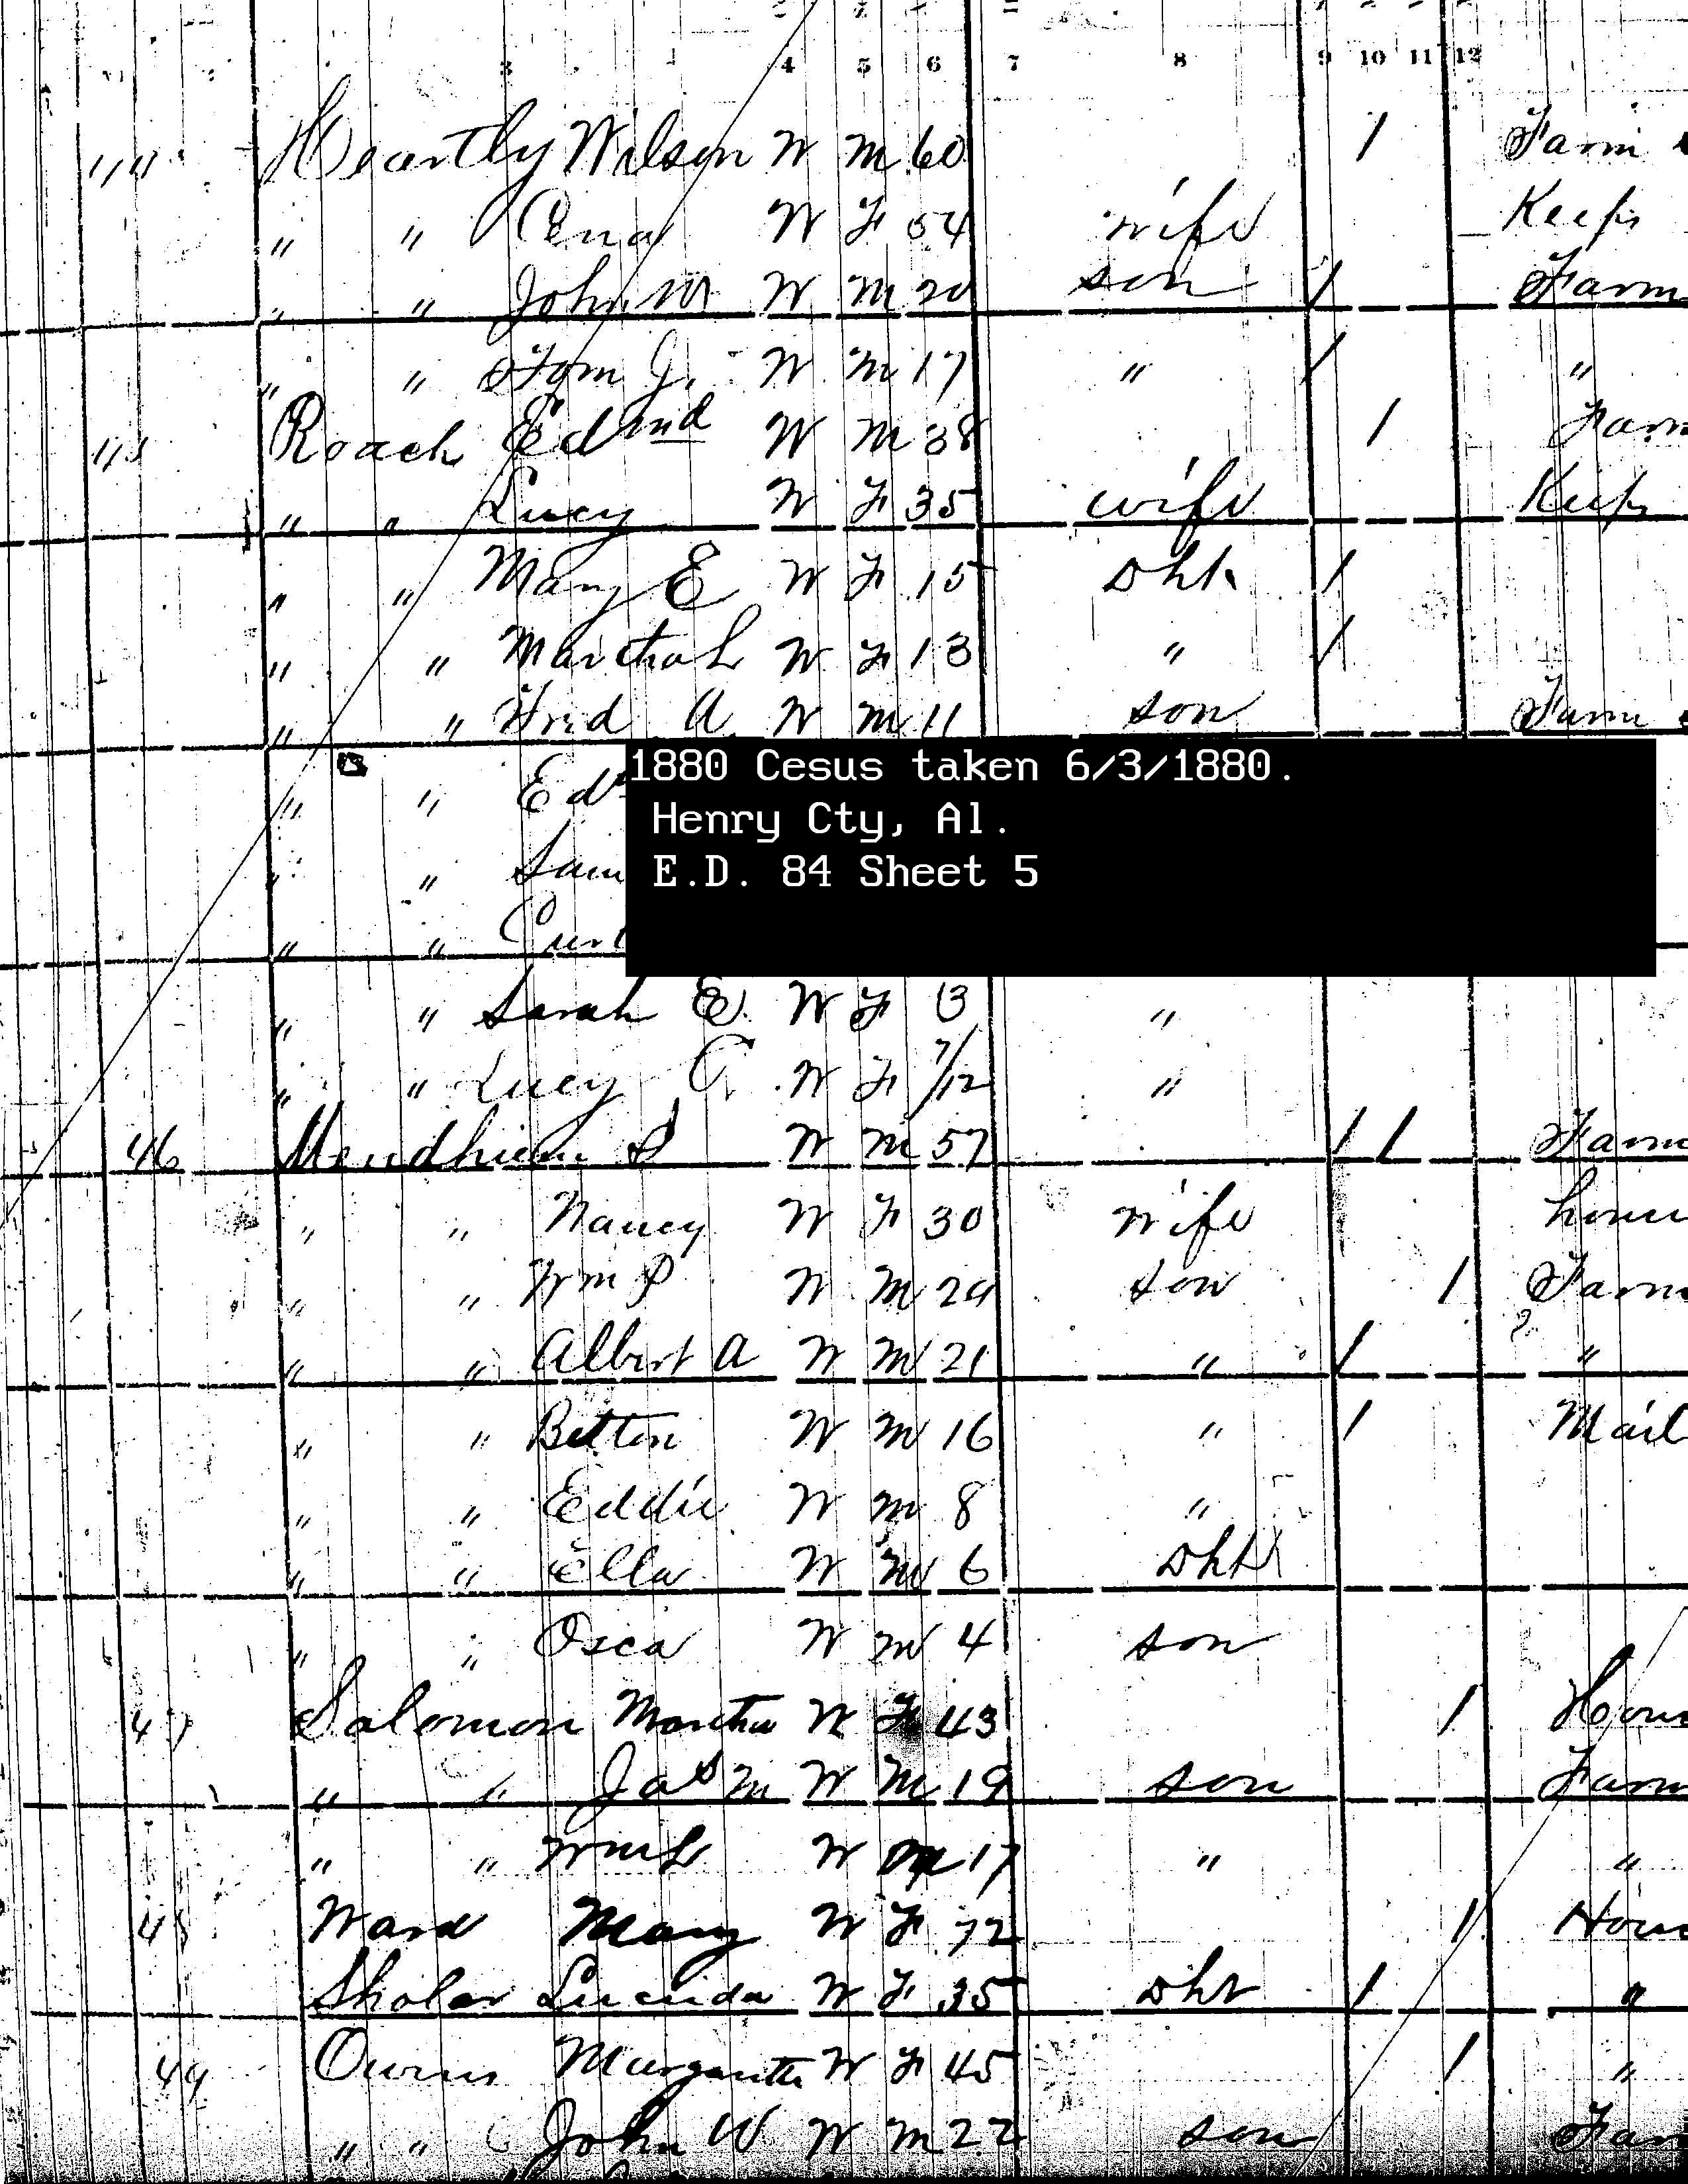 3 4 5 6 7 8 9 10 11 12
44 Heartly Wilson W M 60 1 Farm
" " Cena W F 54 wife Keeps
" " John M W M 20 son 1 Farm
" " Tom J. W M 17 " 1 "
45 Roach Edmd W M 38 1 Farm
" " Lucy W F 35 wife Keeps
" " Mary E W F 15 Dht 1
" " Martha L W F 13 " 1
" " Fred A W M 11 son Farm
" " Ed
1880 Cesus taken 6/3/1880.
Henry Cty, Al.
" " Sam
E.D. 84 Sheet 5
" " Curt
" " Sarah E. W F 3 "
" " Lucy C. W F 7/12 "
46 Mendhiem S W M 57 1 1 Farm
" " Nancy W F 30 wife hous
" " Wm P W M 24 son 1 Farm
" " Albert A W M 21 " 1 "
" " Betton W M 16 " 1 Mail
" " Eddie W M 8 "
" " Ella W M 6 Dht
" " Osca W M 4 son
47 Solomon Martha W F 43 1 Hous
" " Jas M W M 19 son Farm
" " Wm L W M 17 " "
48 Ward Mary W F 72 1 Hous
Sholar Lucinda W F 35 Dht 1 "
49 Owens Margarette W F 45 1 "
" " John W W M 22 son Far